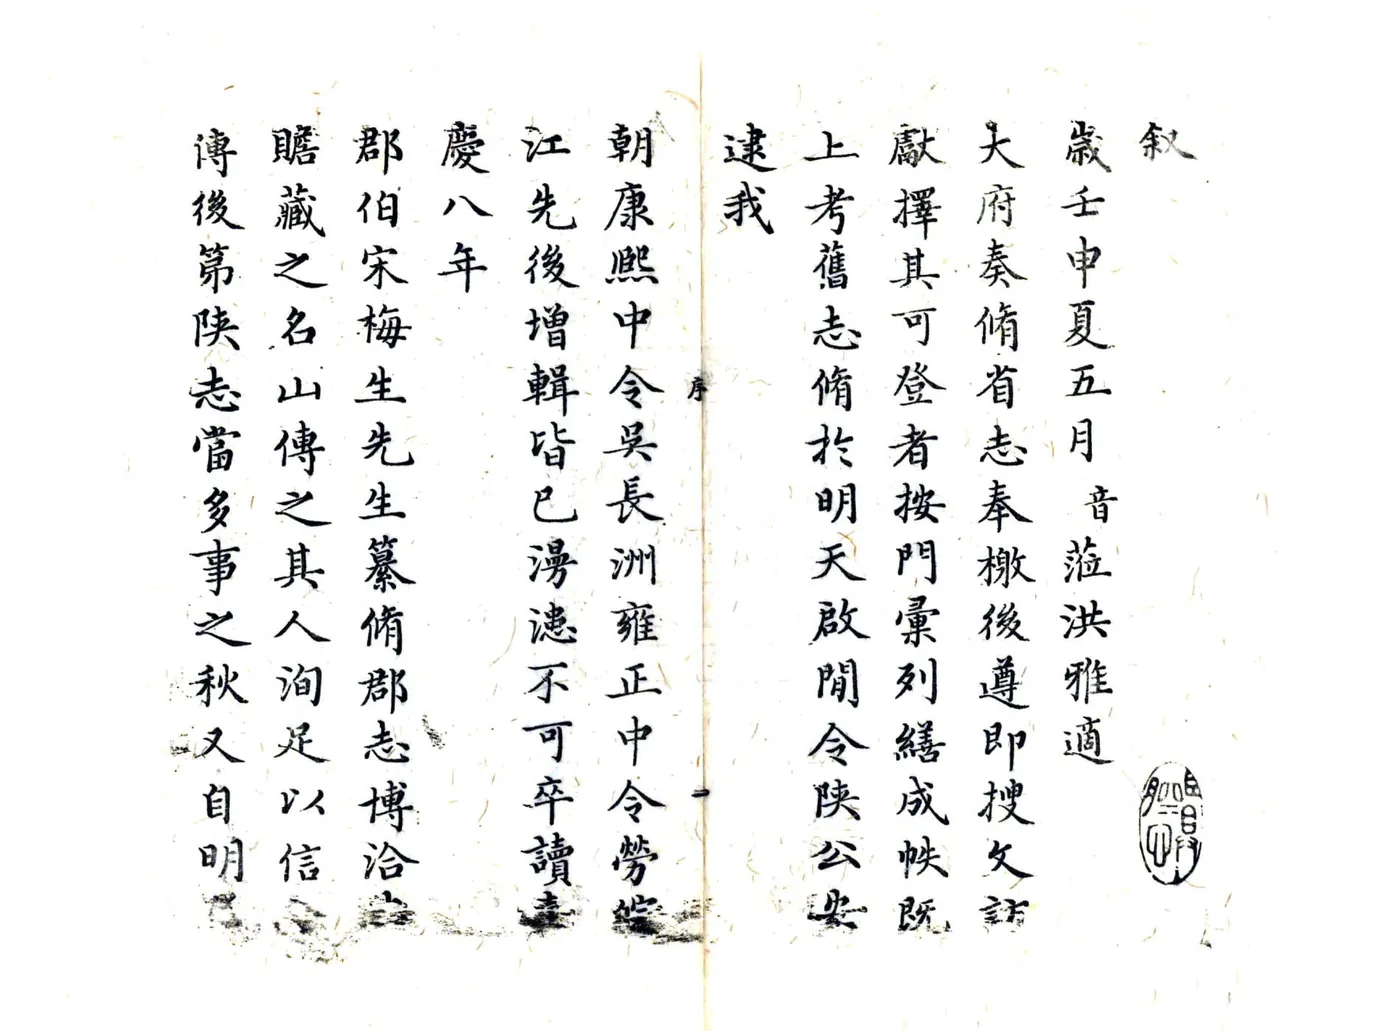 叙
歲壬申夏五月音蒞洪雅適
大府奏脩省志奉檄後遵即搜文訪
獻擇其可登者按門彙列繕成帙既
上考舊志脩於明天啟間令陝公安
逮我
序
一
朝康熙中令吳長洲雍正中令勞
江先後增輯皆已漫漶不可卒讀嘉
慶八年
郡伯宋梅生先生纂脩郡志博洽
贍藏之名山傳之其人洵足以信
傳後第陝志當多事之秋又自明